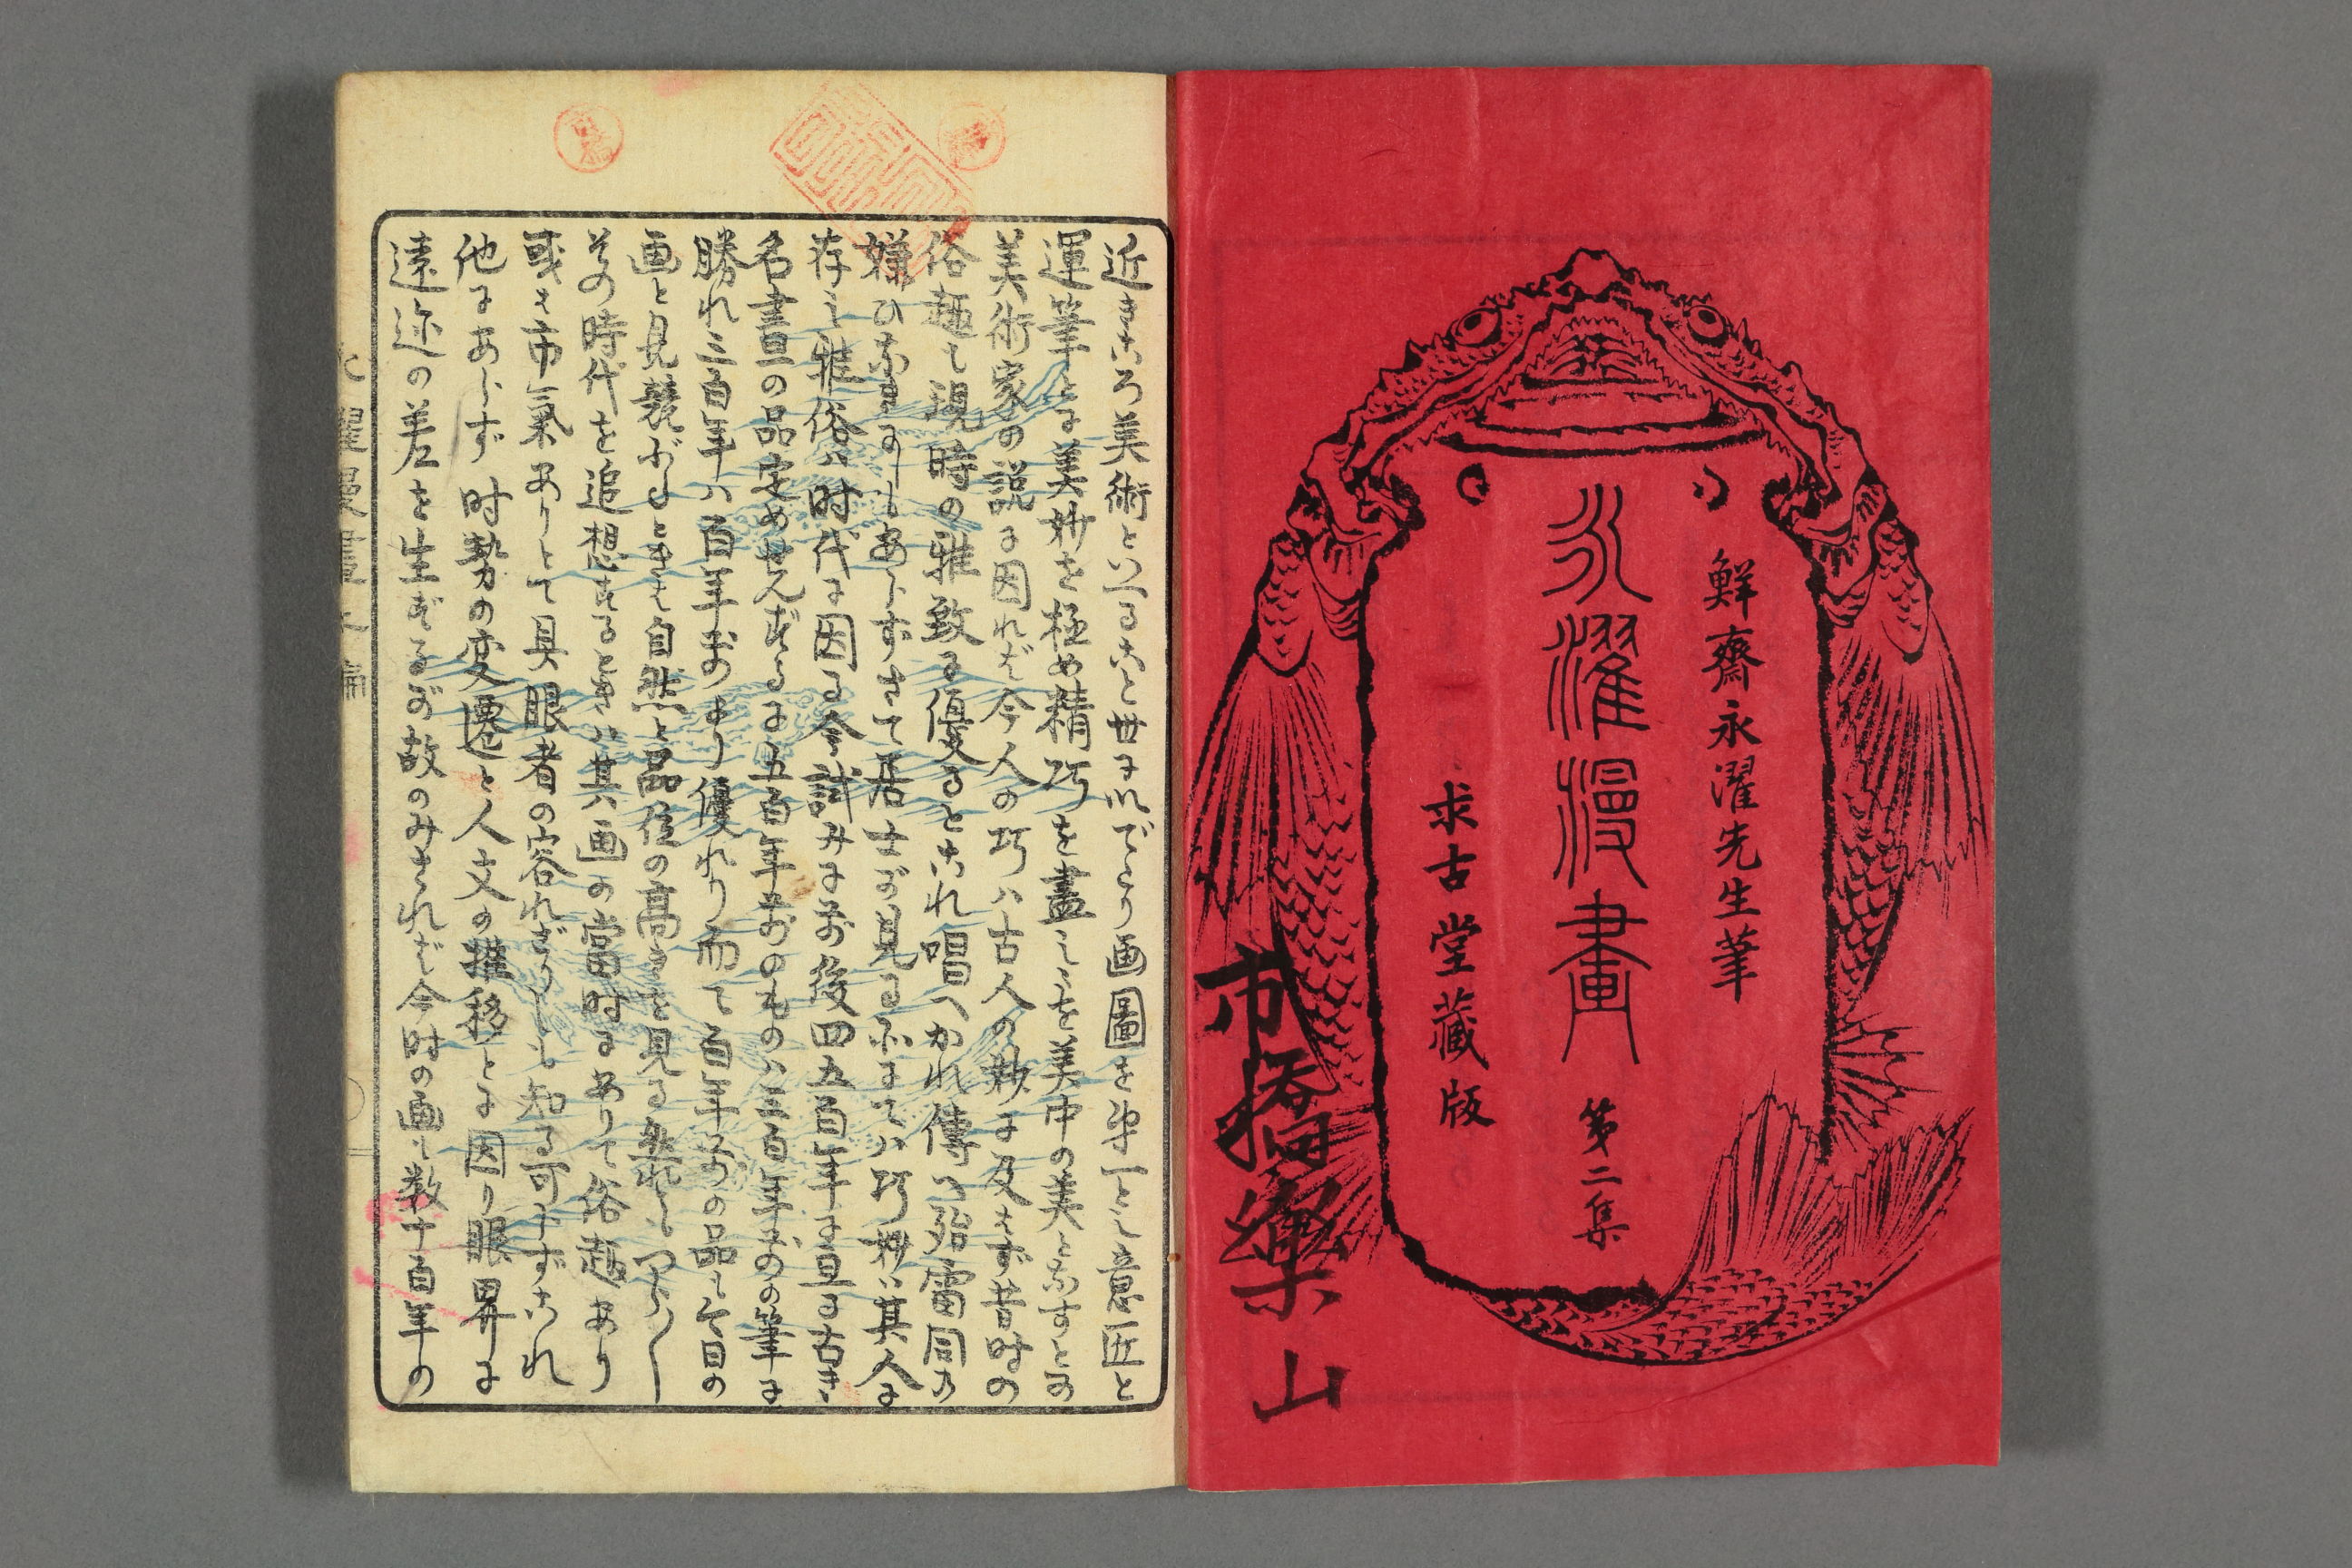 鮮齋永濯先生筆
永濯漫畫 第二集
求古堂藏版
市橋楽山
近きころ美術といへること世に行れてより画圖を第一とし意匠と
運筆とに美妙を極め精巧を盡しゝを美中の美となすとの
美術家の説に因れば今人の巧ハ古人の妙に及はず昔时の
俗趣も現時の雅致に優るとこれ唱へかれ傳へ殆雷同の
嫌ひなきにしもあらずさて居士が見る所にてハ巧妙ハ其人に
存し雅俗ハ时代に因る今試みに前後四五百年に亘る古き
名畫の品定めせんずるに五百年前のものハ三百年前の筆に
勝れ三百年ハ百年前より優れり而て百年前の品も今日の
画と見競ぶるときは自然と品位の高きを見る然れどもつら〱
その時代を追想するときハ其画の當时にありて俗趣あり
或は市氣ありとて具眼者の容れざりしも知る可からずこれ
他にあらず时勢の変遷と人文の推移とに因り眼界に
遠近の差を生ずるが故のみされば今时の画も数十百年の